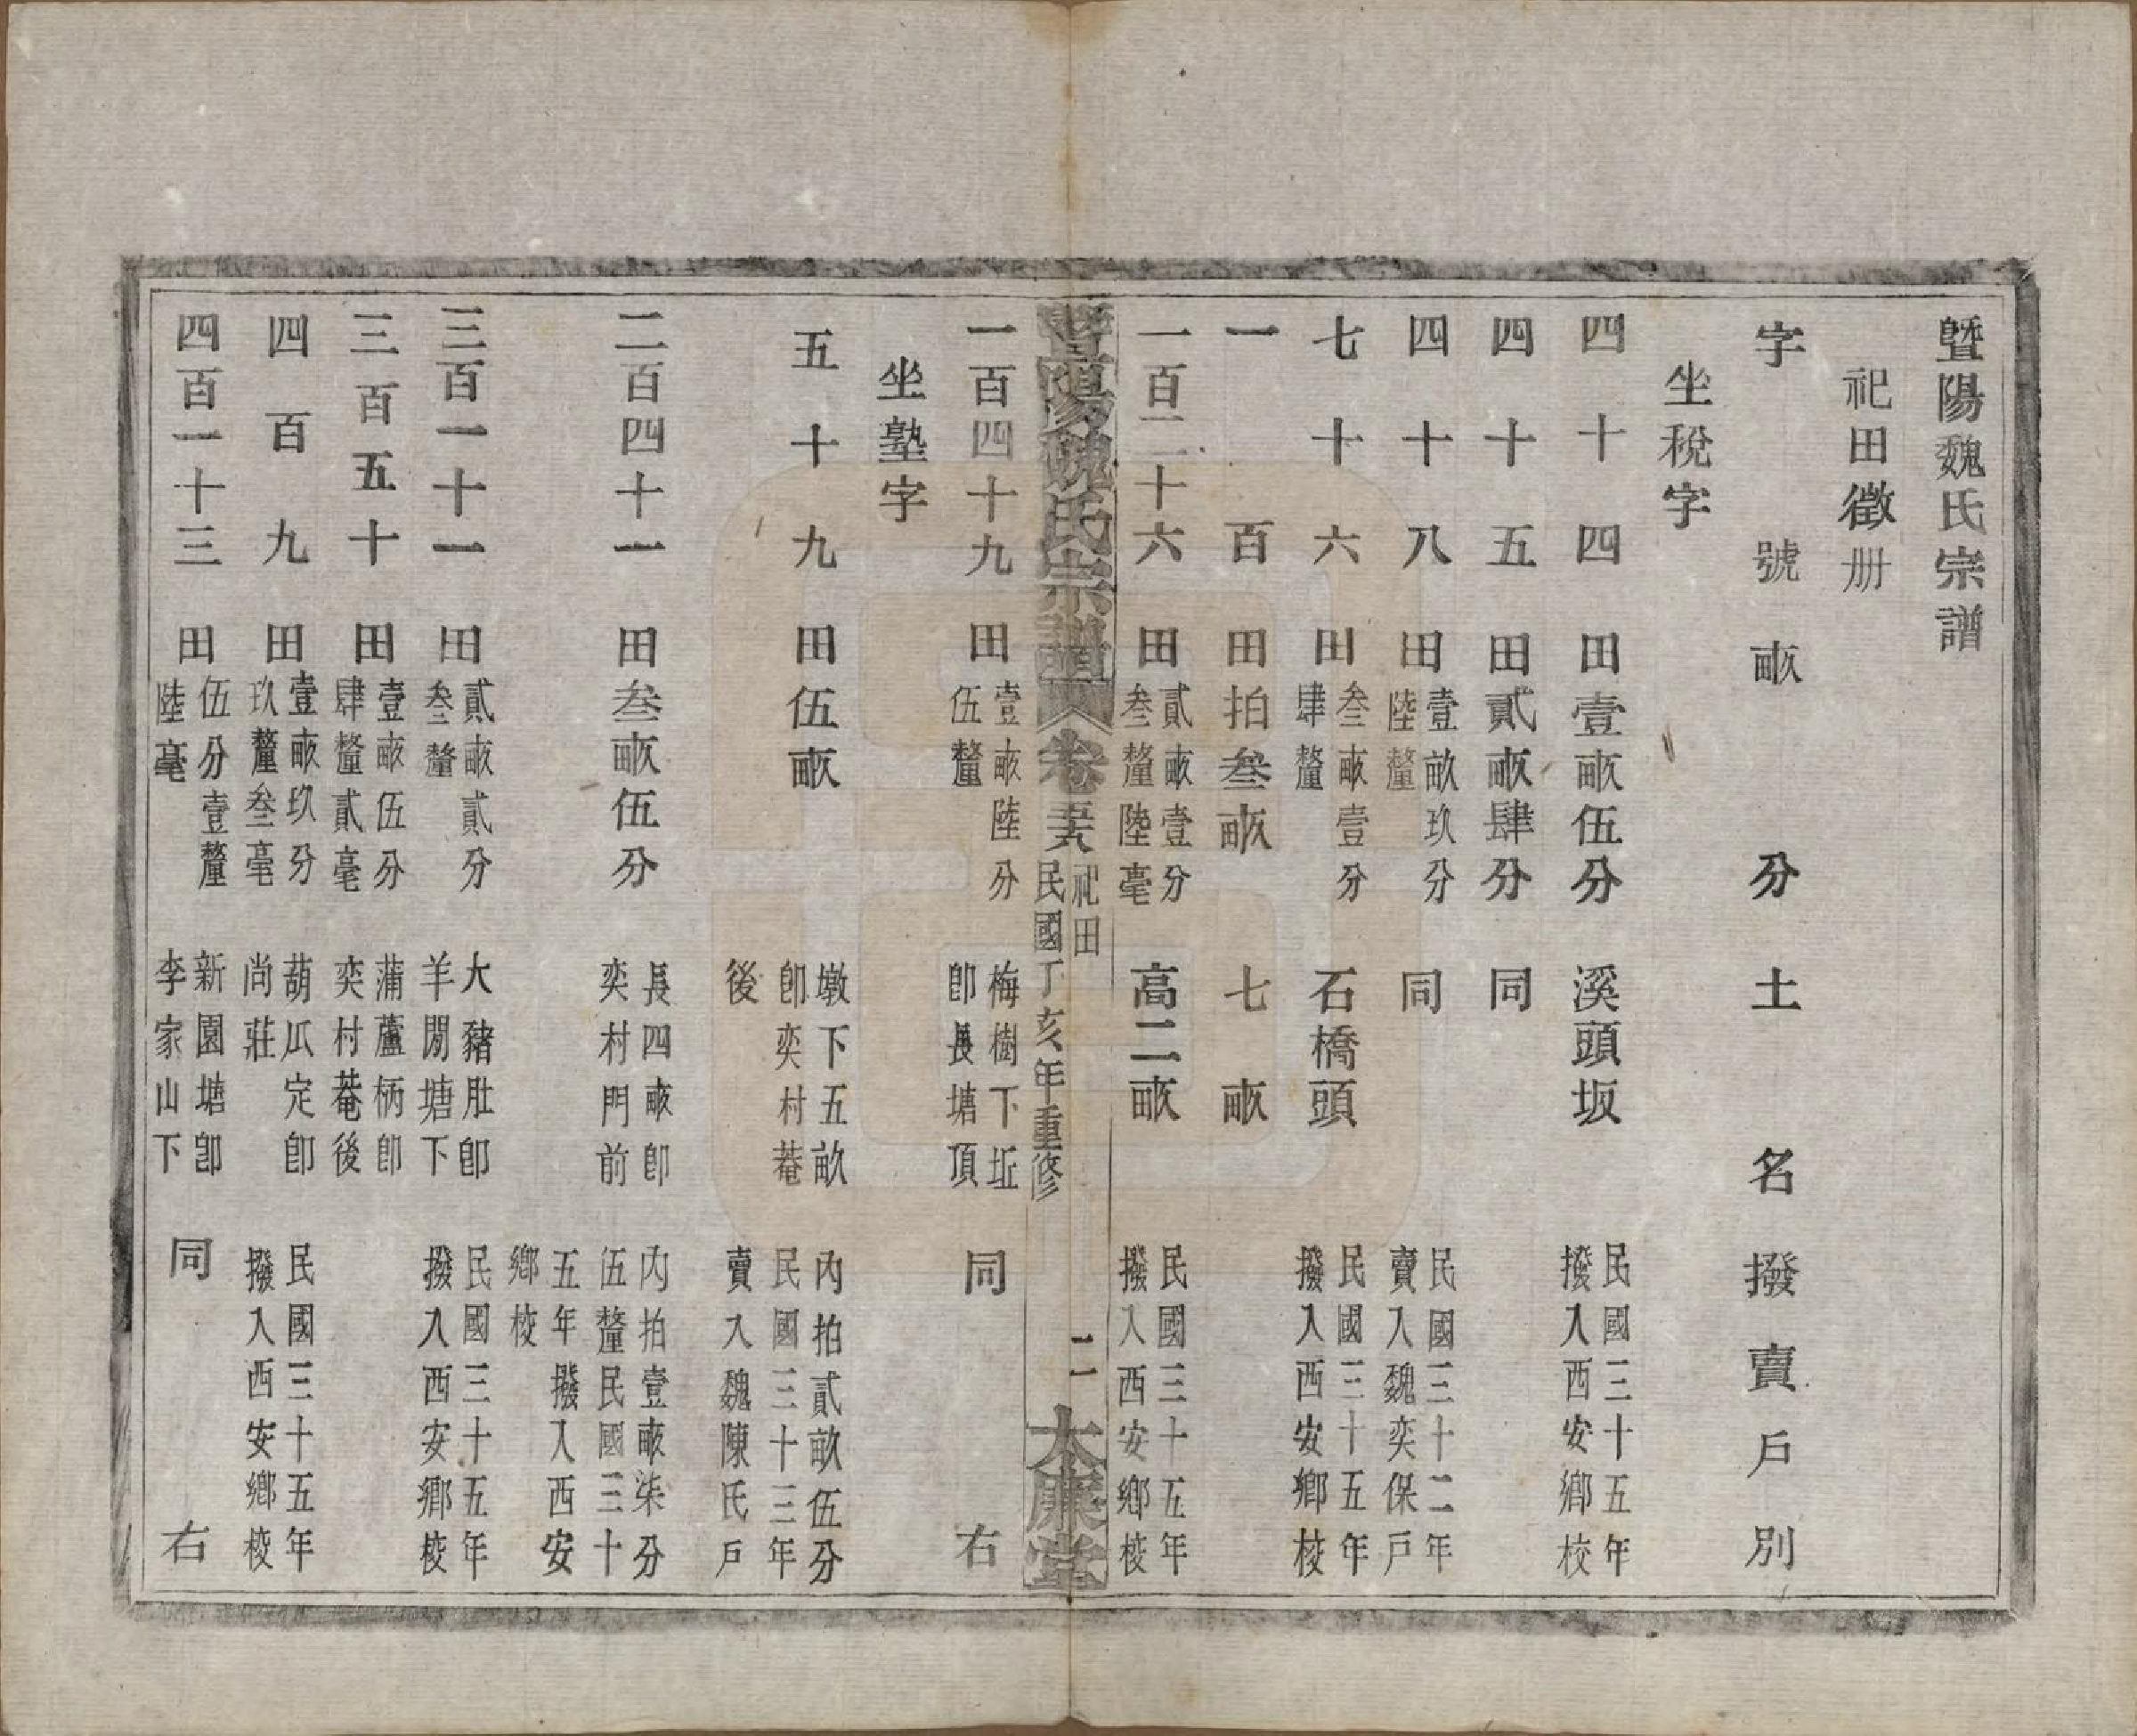 暨陽魏氏宗譜
祀田徵册
字號 畝分 土名 撥賣戶別
坐稅字
四十四 田壹畝伍分 溪頭坂 民國三十五年撥入西安鄉校
四十五 田貳畝肆分 同
四十八 田壹畝玖分陸釐 同 民國三十二年賣入魏奕保戶
七十六 田叁畝壹分肆釐 石橋頭 民國三十五年撥入西安鄉校
一百 田拍叁畝 七畝
一百二十六 田貳畝壹分叁釐陸毫 高二畝 民國三十五年撥入西安鄉校
暨陽魏氏宗譜 卷五六 祀田 民國丁亥年重修 二 大廉堂
一百四十九 田壹畝陸分伍釐 梅樹下坵卽長塘頂 同右
坐塾字
五十九 田伍畝 墩下五畝卽奕村菴後 內拍貳畝伍分民國三十三年賣入魏陳氏戶
二百四十一 田叁畝伍分 長四畝卽奕村門前 內拍壹畝柒分伍釐民國三十五年撥入西安鄉校
三百一十一 田貳畝貳分叁釐 大豬肚卽羊閒塘下 民國三十五年撥入西安鄉校
三百五十 田壹畝伍分肆釐貳毫 蒲蘆柄卽奕村菴後
四百九 田壹畝玖分玖釐叁毫 葫瓜定卽尚莊 民國三十五年撥入西安鄉校
四百一十三 田伍分壹釐陸毫 新園塘卽李家山下 同右